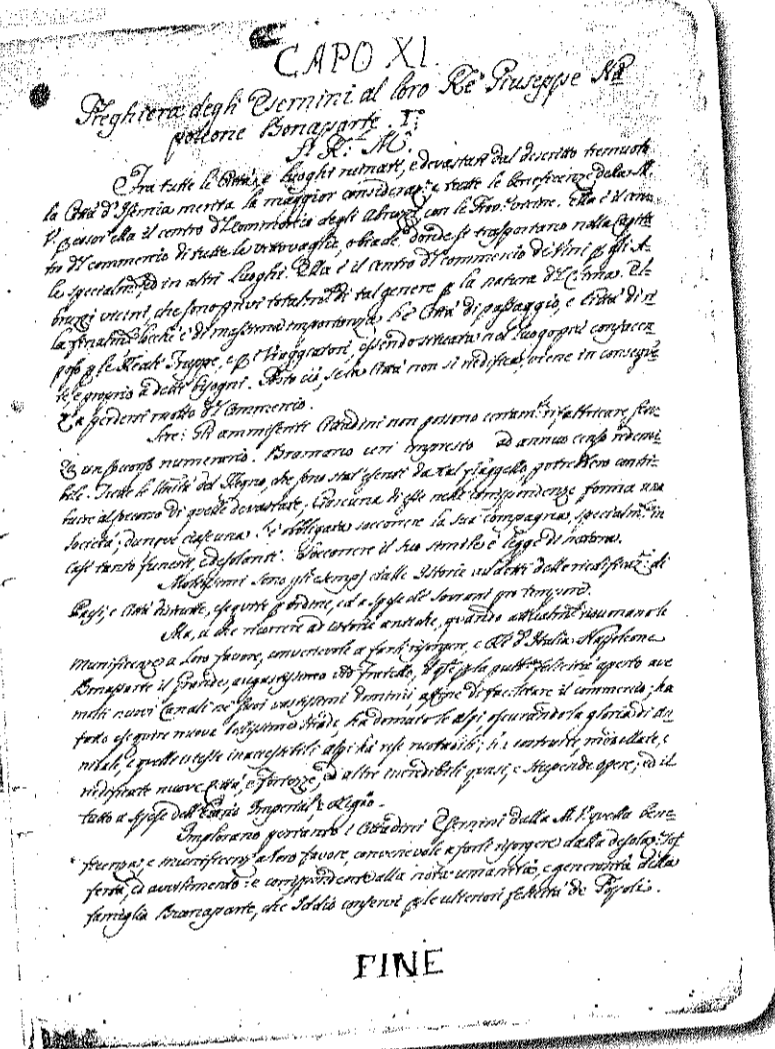 CAPO XI.
Preghiera degli Isernini al loro Rè Giuseppe Na
poleone Bonaparte I.º
S. R. M.
Fra tutte le Città, e Luoghi ruinati, e devastati dal descritto tremuoto
la Città d'Isernia merita la maggior consideraz.e e tratte le beneficenze della M.
V. esser ella il centro del Commercio degli Abruzzi con le Prov.
tro del commercio di tutte le vettovaglie, e biade, donde si trasportano nella Capita
le specialm.te ed in altri Luoghi. Ella è il centro del commercio di Vini p gli A
bruzzi vicini, che sono privi di tal genere p la natura del Clima. El
la finalm.te è di massima importanza Città di passaggio, e Città di ri
poso p le Reali Truppe, e p i Viaggiatori, essendo situata nel luogo più confacen
te e proprio a detti bisogni. Posto ciò, se la Città non si riedifica, viene in consegue
za a perdersi molto del Commercio.
Sire: Gli ammiseriti Cittadini non possono certam.te rifabbricare sen
za un soccorso numerario. Bramarebbero un impresto ad annuo censo redimi
bile. Tutte le Unità del Regno, che sono stat' esenti da tal flaggello, potrebbero contri
buire al soccorso di quelle devastate; Ciascuna di esse nelle corrispondenze forma una
società; dunque ciascuna è obbligata soccorrere la sua compagna, specialm.te in
casi tanto funesti, e desolanti. Soccorrere il suo simile è legge di natura.
Moltissimi sono gli esempj dalle Istorie additati delle riedificaz.i di
Paesi, e Città distrutte, eseguite p ordine, ed a spese de' Sovrani pro tempore.
Ma, a che ricorrere ad istorie antiche, quando
munificenze a loro favore, convenevole a farli risorgere, e Rè d'Italia Napoleone
Bonaparte il Grande, augustissimo V.ro Fratello, p la felicità aperto ave
molti nuovi Canali ne' suoi vastissimi Dominii affine di facilitare il commercio; ha
fatto eseguire nuove bellissime strade, ha domato le alpi oscurando la gloria di An
nibale, e quelle stesse inaccessibili alpi hà rese ruotabili; hà costruite, modellate, e
riedificate nuove Città, e fortezze, ed altre incredibili quasi, e stupende opere; ed il
tutto a spese dell'Erario Imperial', e Regio.
Implorano pertanto i Cittadini Isernini dalla M. V. quella bene
ficenza, e munificenza a loro favore, convenevole a farli risorgere dalla desolaz.e sof
ferta, ed avvilimento: e corrispondente alla nota umanità, e generosità della
famiglia Buonaparte, che Iddio conservi p le ulteriori felicità de' Popoli.
FINE